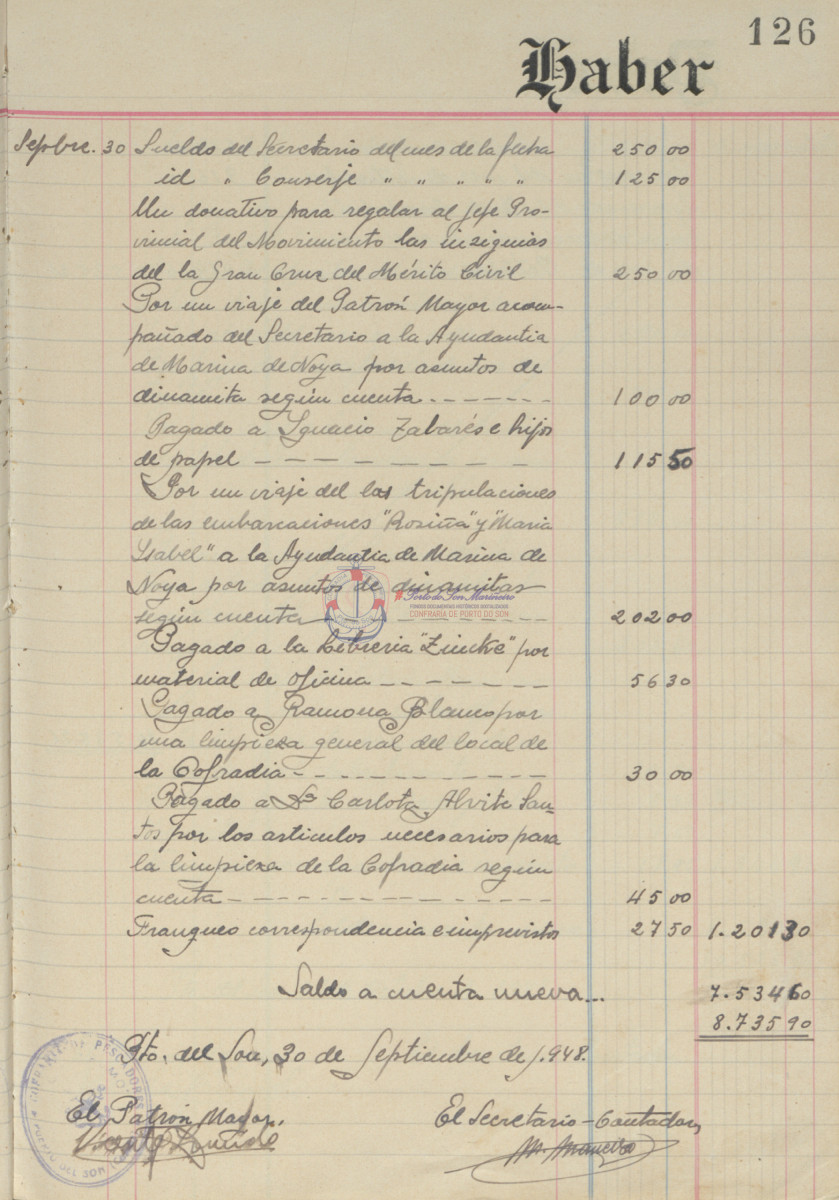 126
Haber
Sepbre. 30 Sueldo del Secretario del mes de la fecha 250 00
id " Conserje " " " " " 125 00
Un donativo para regalar al jefe Pro-
vincial del Movimiento las insignias
del la Gran Cruz del Mérito Civil 250 00
Por un viaje del Patrón Mayor acom-
pañado del Secretario a la Ayudantia
de Marina de Noya por asuntos de
dinamita según cuenta 100 00
Pagado a Ignacio Tabarés e hijos
de papel 115 50
Por un viaje del las tripulaciones
de las embarcaciones "Rosiña" y "Maria
Ysabel" a la Ayudantia de Marina de
Noya por asuntos de dinamitas
según cuenta 202 00
Porto do Son Mariñeiro
FONDOS DOCUMENTAIS HISTÓRICOS DIXITALIZADOS
CONFRARÍA DE PORTO DO SON
Pagado a la Libreria "Zincke" por
material de oficina 56 30
Pagado a Ramona Blanco por
una limpieza general del local de
la Cofradia 30 00
Pagado a Dª Carlota Alvite San-
tos por los articulos necesarios para
la limpieza de la Cofradia según
cuenta 45 00
Franqueo correspondencia e imprevistos 27 50 1.201 30
Saldo a cuenta nueva... 7.534 60
8.735 90
Pto. del Son, 30 de Septiembre de 1.948.
El Patrón Mayor, El Secretario-Contador,